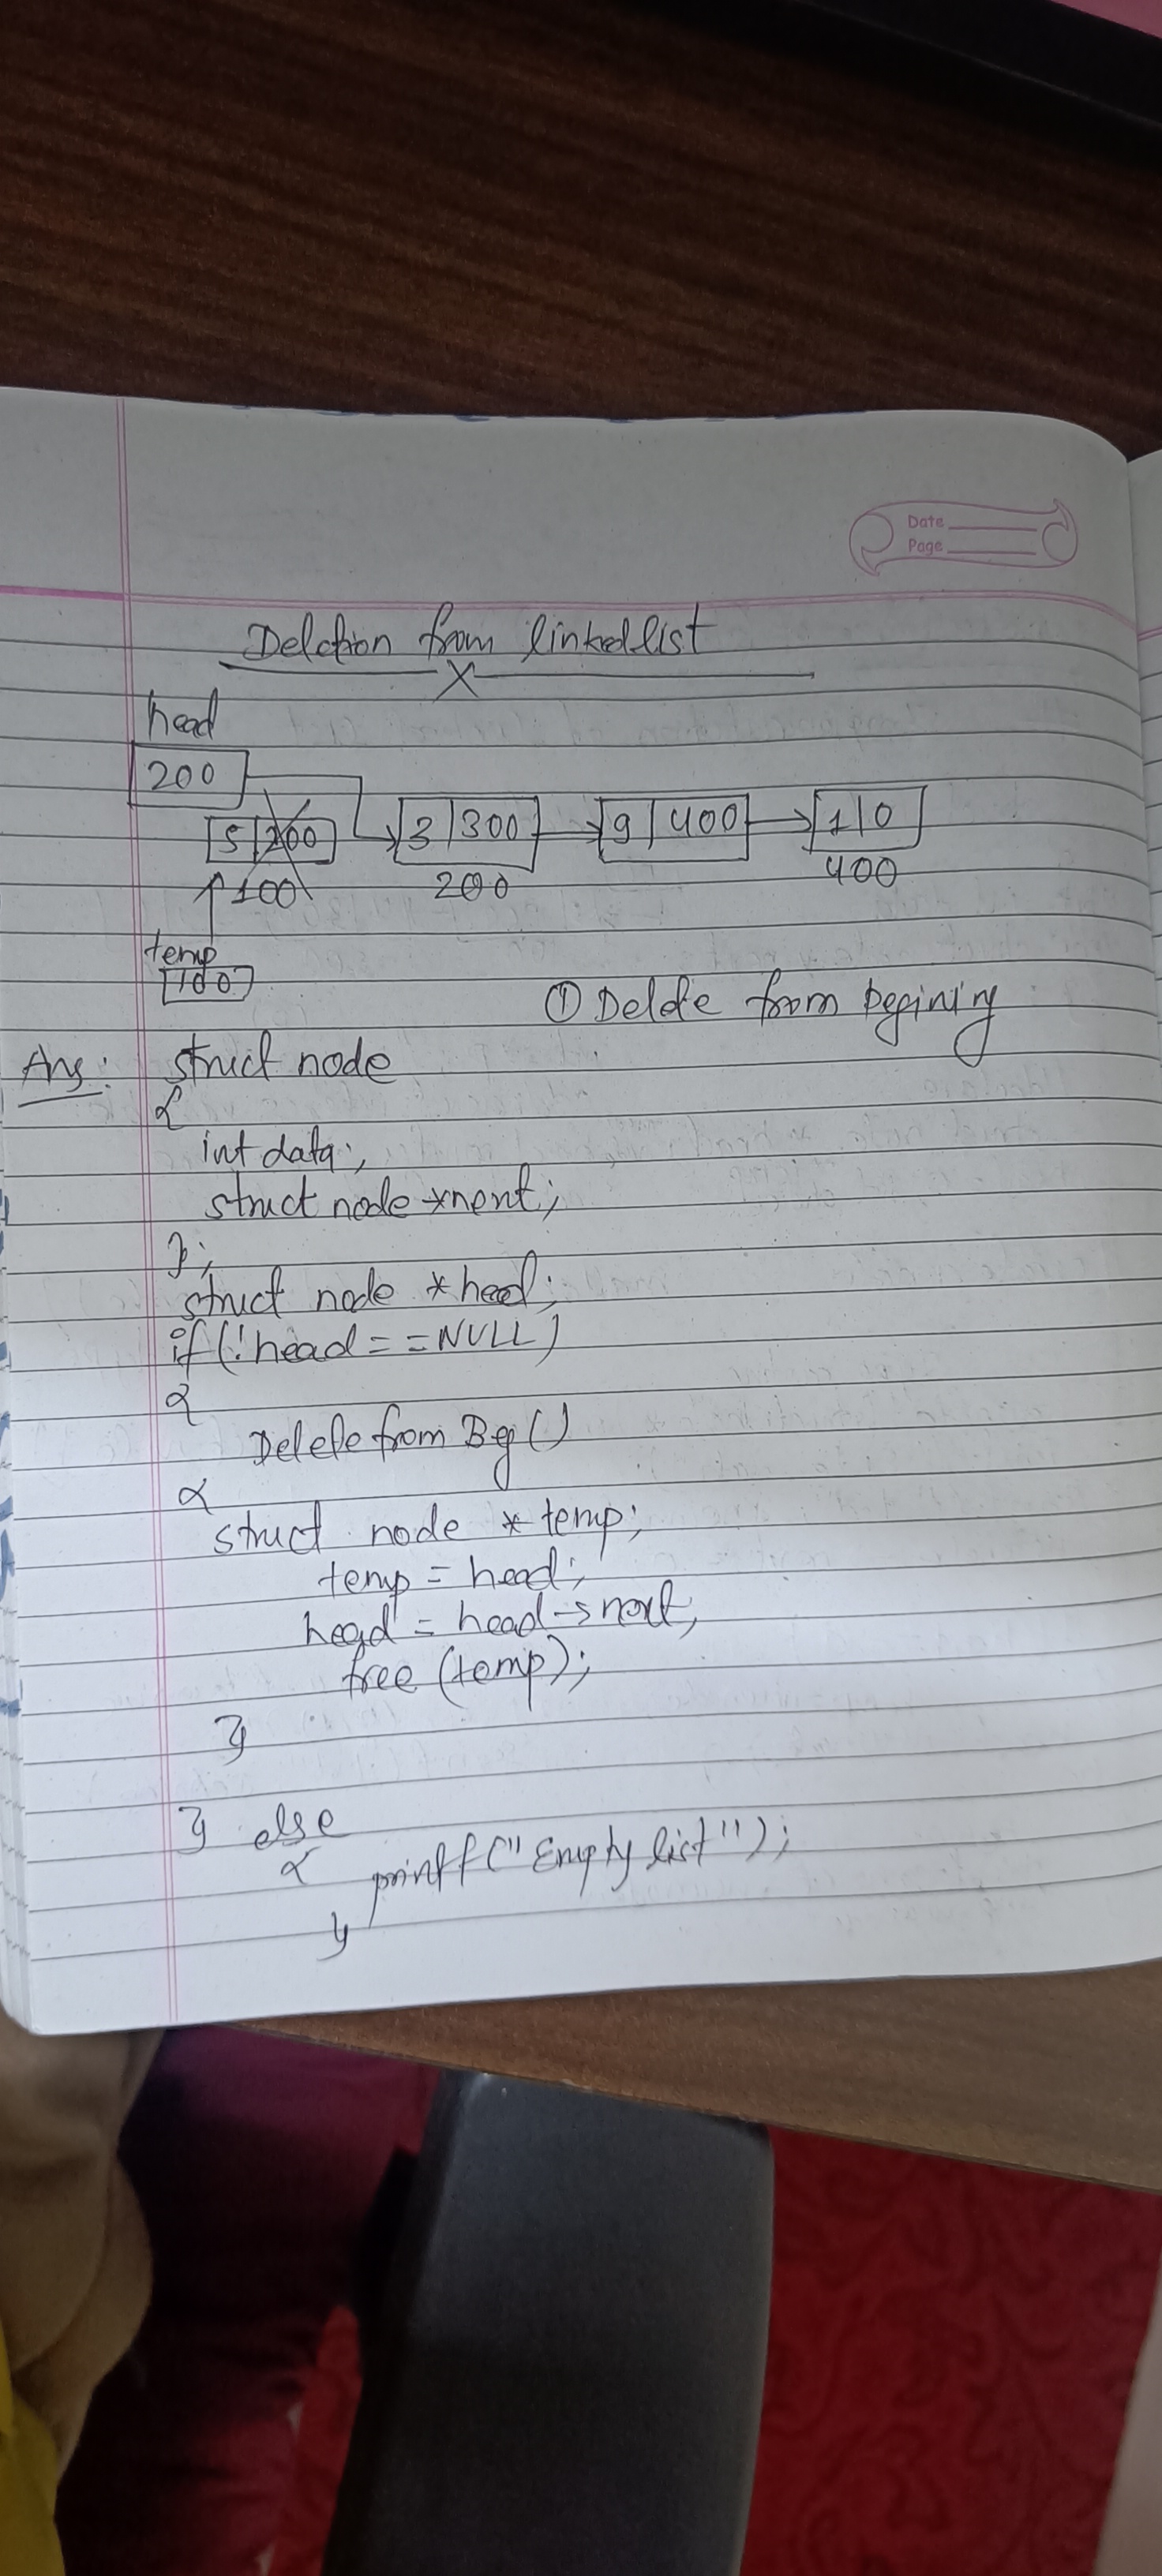 Date
Page
Deletion from linked list
X
head
200
5 200 3 300 9 400 1 0
100 200 400
temp
100
① Delete from begining
Ans: struct node
{
int data;
struct node *next;
};
struct node *head;
if(!head==NULL)
{
Delete from Beg()
{
struct node *temp;
temp = head;
head = head->next;
free (temp);
}
} else
{ printf("Empty list");
}